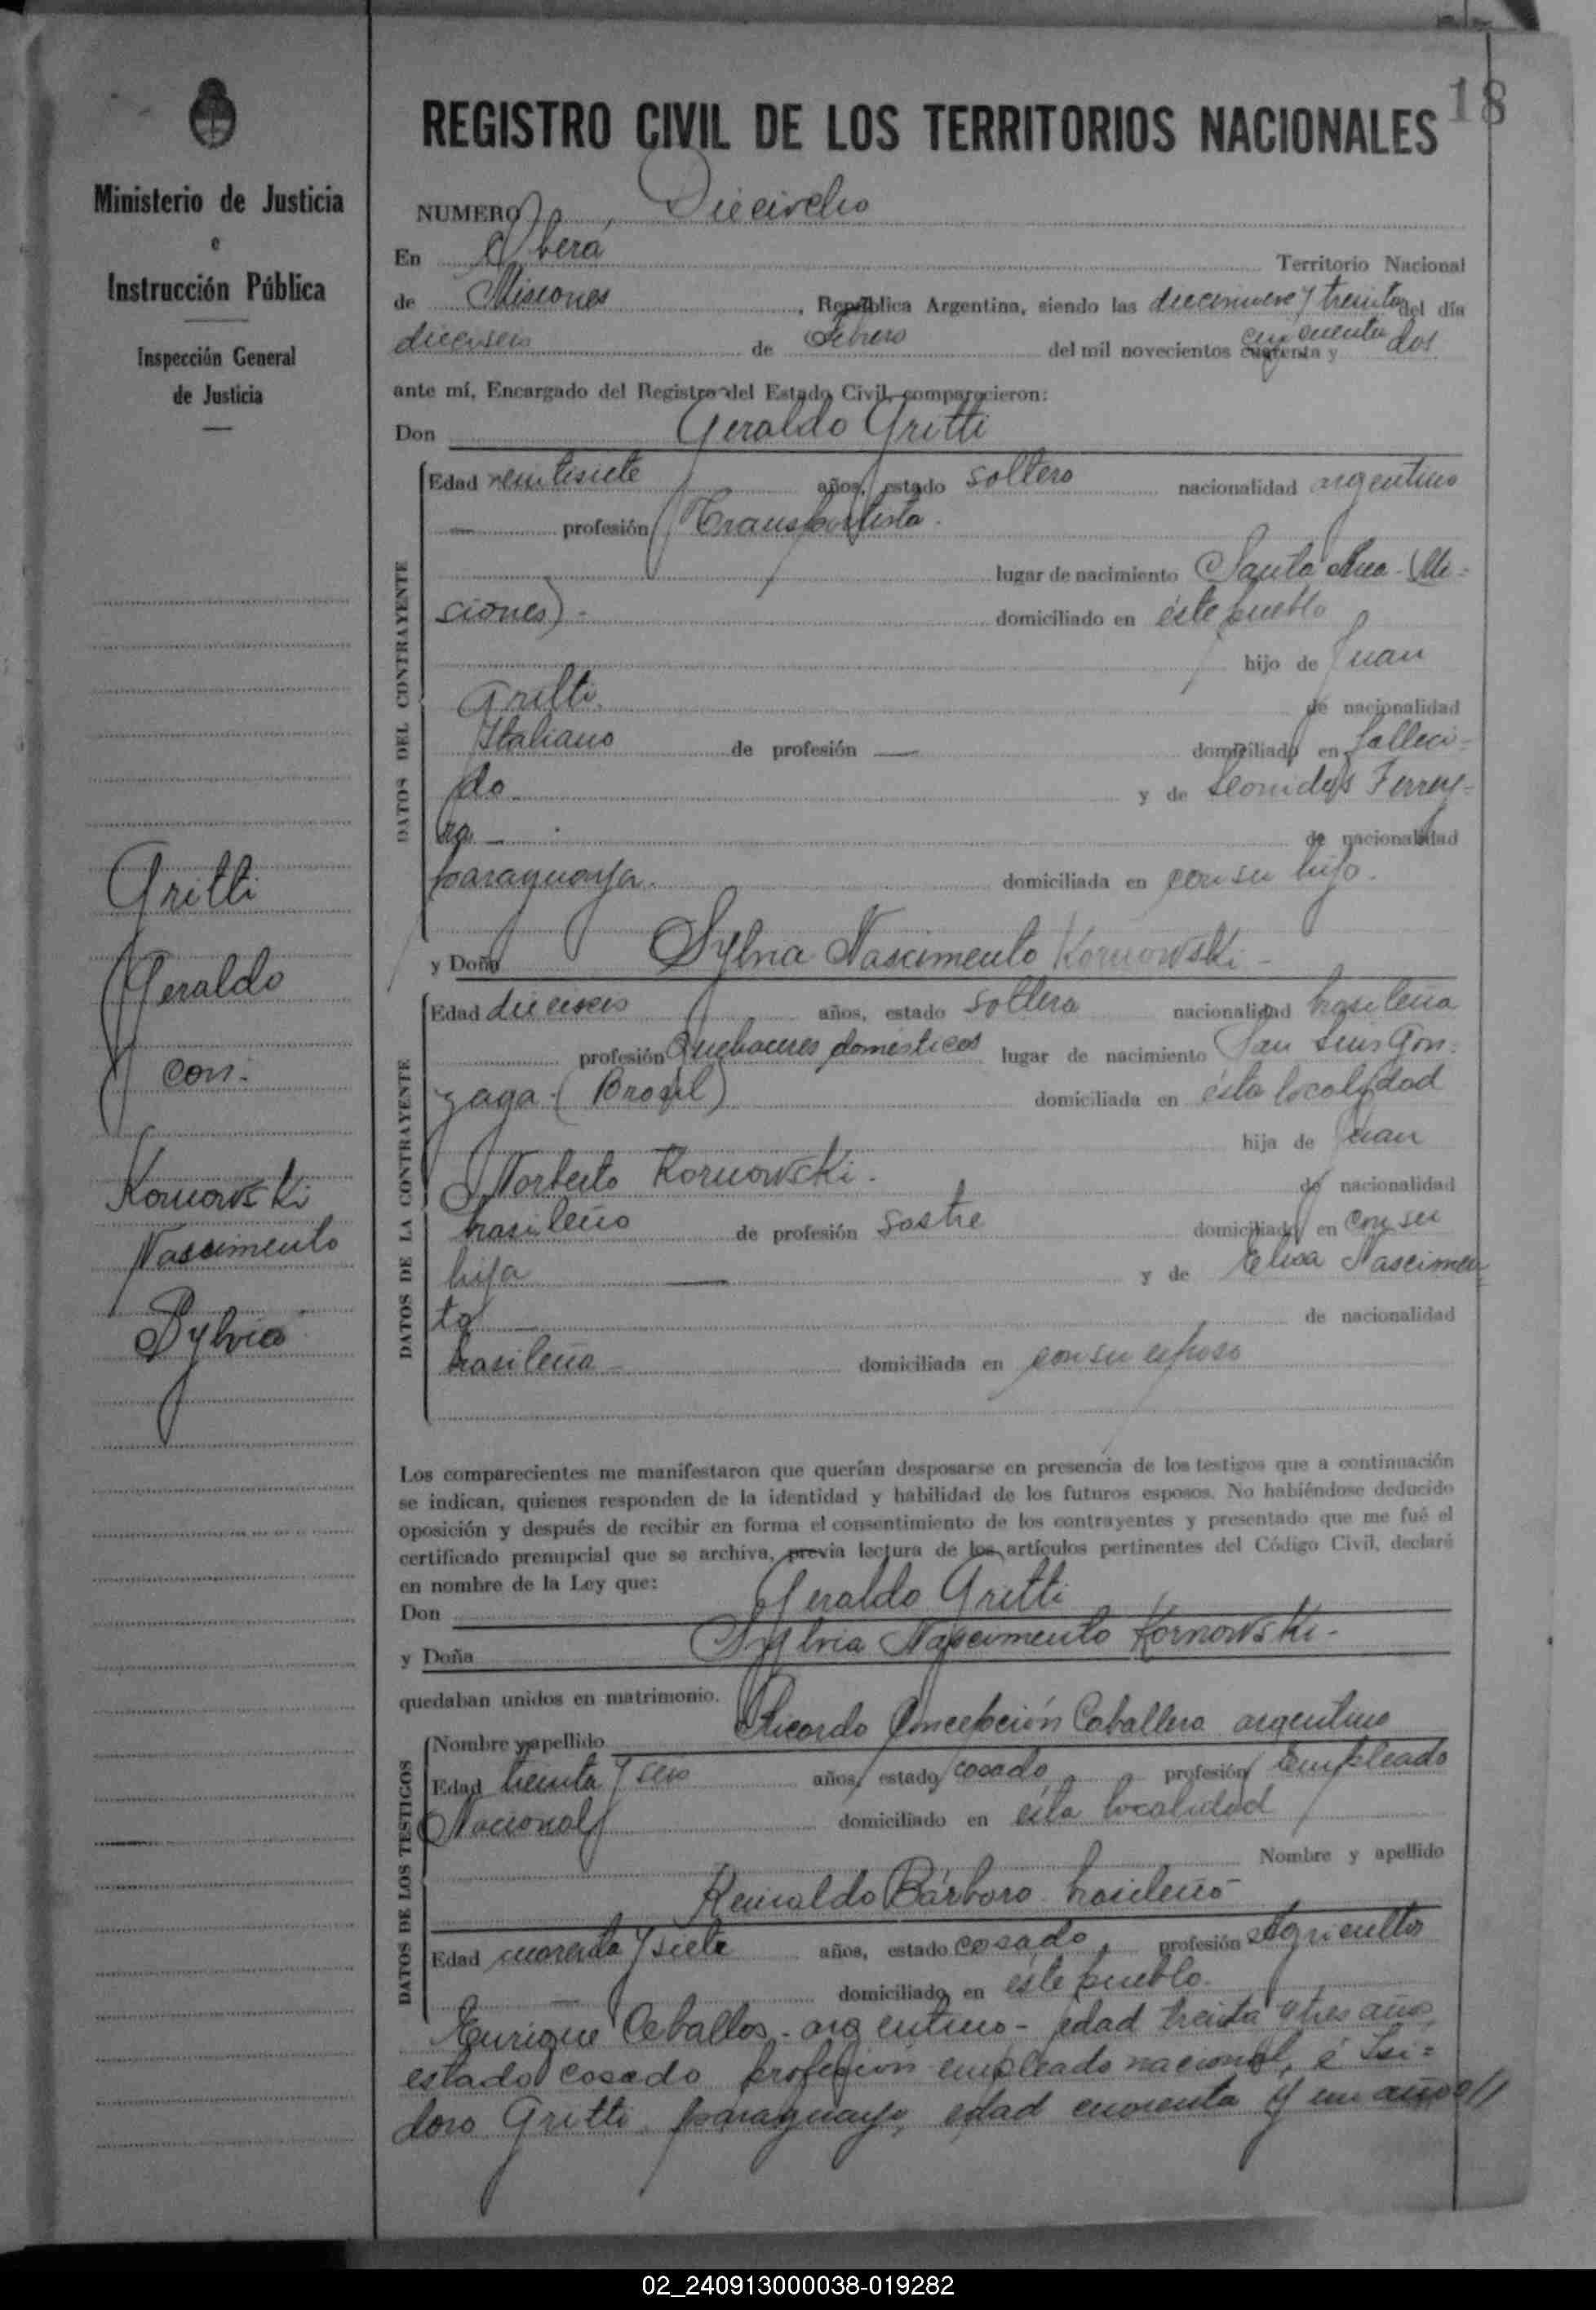 18
Ministerio de Justicia
e
Instrucción Pública
Inspección General
de Justicia
Gritti
Geraldo
con.
Kornowski
Nascimento
Sylvia
REGISTRO CIVIL DE LOS TERRITORIOS NACIONALES
NUMERO Dieciocho
En Oberá Territorio Nacional
de Misiones, República Argentina, siendo las diecinueve y treinta del día
dieciseis de Febrero del mil novecientos cuarenta y cincuenta dos
ante mí, Encargado del Registro del Estado Civil, comparecieron:
Don Geraldo Gritti
DATOS DEL CONTRAYENTE
Edad veintisiete años, estado soltero nacionalidad argentino
— profesión Transportista.
lugar de nacimiento Santa Ana - (Mi-
siones) - domiciliado en éste pueblo
hijo de Juan
Gritti. de nacionalidad
Italiano de profesión — domiciliado en falleci-
do y de Leonidas Ferrey-
ra — de nacionalidad
paraguaya. domiciliada en con su hijo.
y Doña Sylvia Nascimento Kornowski -
DATOS DE LA CONTRAYENTE
Edad dieciseis años, estado soltera nacionalidad brasileña
profesión Quehaceres domésticos lugar de nacimiento San Luis Gon-
zaga - (Brasil) domiciliada en ésta localidad
hija de Juan
Norberto Kornowski. de nacionalidad
brasileño de profesión sastre domiciliado en con su
hija — y de Elisa Nascimen-
to — de nacionalidad
brasileña - domiciliada en con su esposo
Los comparecientes me manifestaron que querían desposarse en presencia de los testigos que a continuación
se indican, quienes responden de la identidad y habilidad de los futuros esposos. No habiéndose deducido
oposición y después de recibir en forma el consentimiento de los contrayentes y presentado que me fué el
certificado prenupcial que se archiva, previa lectura de los artículos pertinentes del Código Civil, declaré
en nombre de la Ley que:
Don Geraldo Gritti
y Doña Sylvia Nascimento Kornowski -
quedaban unidos en matrimonio.
DATOS DE LOS TESTIGOS
Nombre y apellido Ricardo Concepción Caballero argentino
Edad treinta y seis años, estado casado profesión Empleado
Nacional domiciliado en ésta localidad
Nombre y apellido
Reinaldo Bárbaro brasileño
Edad cuarenta y siete años, estado casado, profesión Agricultor
— domiciliado en éste pueblo.
Enrique Ceballos - argentino - edad treinta y tres años,
estado casado profesión empleado nacional, é Isi=
doro Gritti paraguayo, edad cuarenta y un años//
02_240913000038-019282